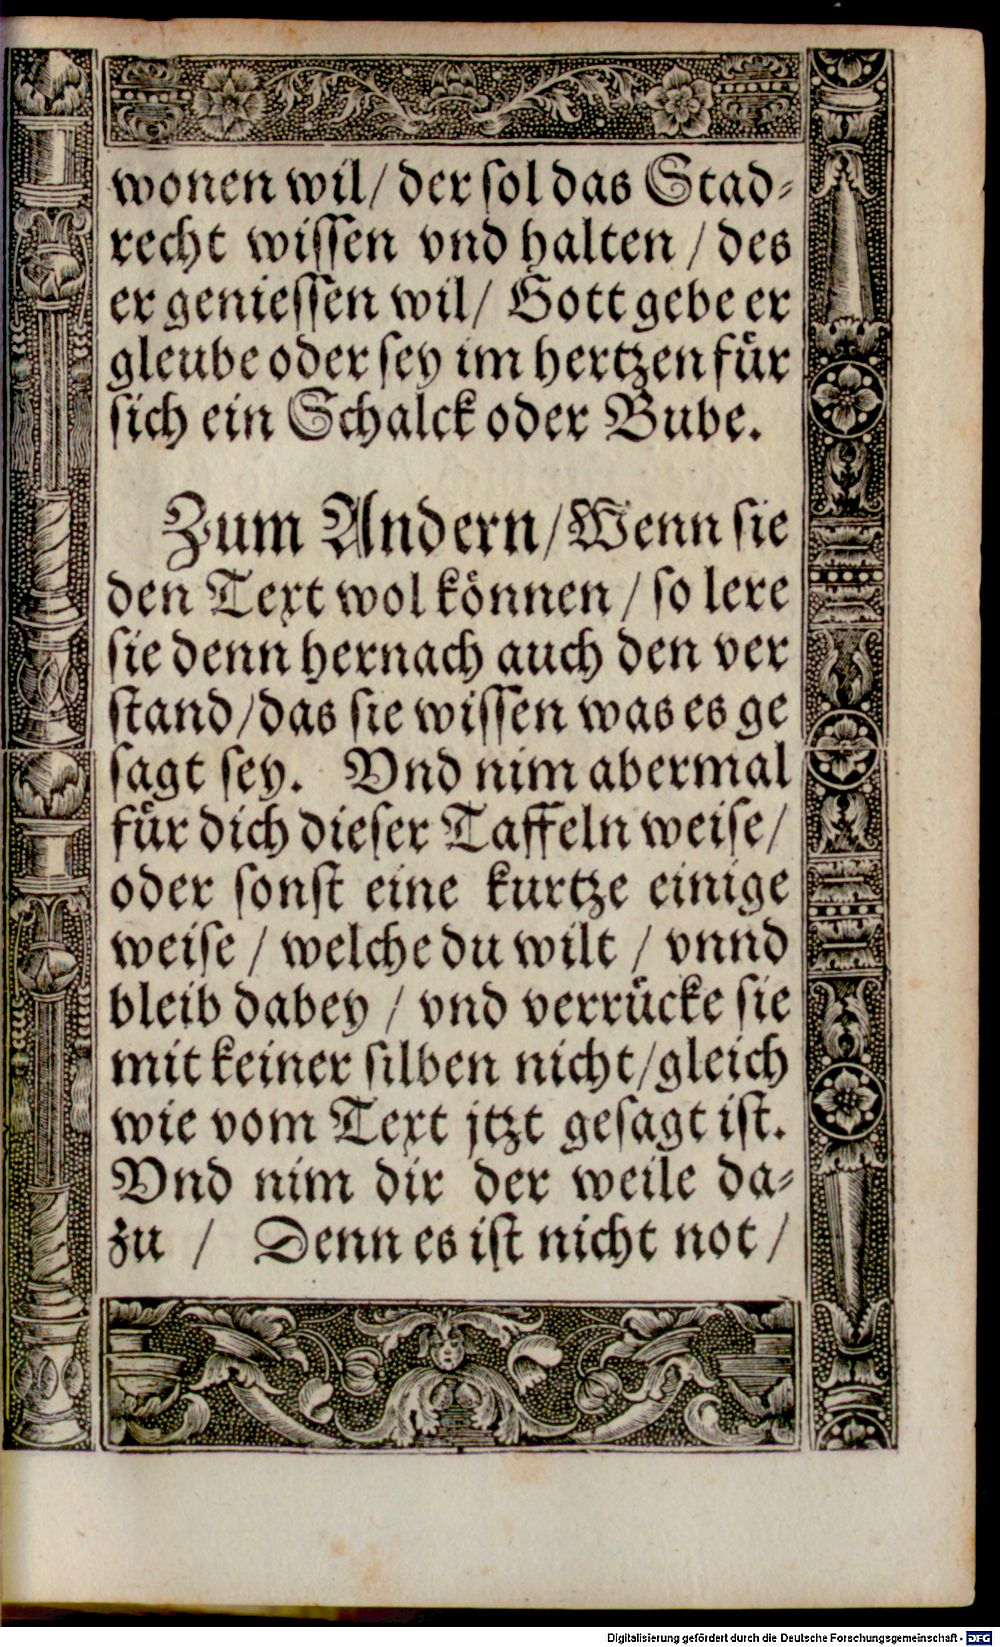 wonen wil/ der ſol das Stad⸗
recht wiſſen vnd halten / des
er genieſſen wil/ Gott gebe er
gleube oder ſey im hertzen fuͤr
ſich ein Schalck oder Bube.
Zum Andern/ Wenn ſie
den Text wol koͤnnen / ſo lere
ſie denn hernach auch den ver
ſtand/ das ſie wiſſen was es ge
ſagt ſey. Vnd nim abermal
fuͤr dich dieſer Taffeln weiſe/
oder ſonſt eine kurtze einige
weiſe / welche du wilt / vnnd
bleib dabey / vnd verruͤcke ſie
mit keiner ſilben nicht/ gleich
wie vom Text jtzt geſagt iſt.
Vnd nim dir der weile da⸗
zu / Denn es iſt nicht not /
Digitalisierung gefördert durch die Deutsche Forschungsgemeinschaft - DFG